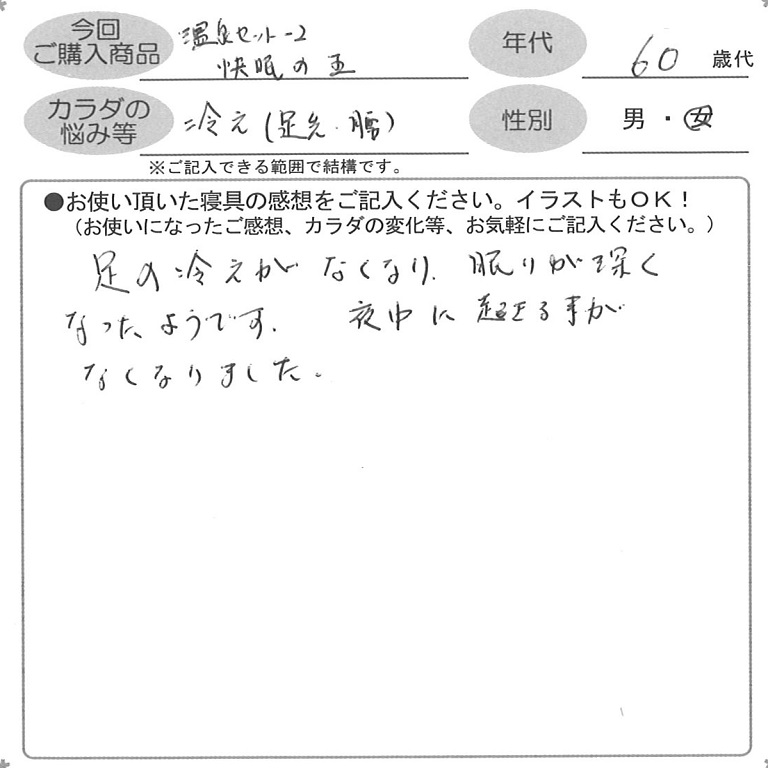 今回
ご購入商品
温泉セット-2
快眠の玉
年代
60歳代
カラダの
悩み等
冷え(足先・腰)
性別
男・女
※ご記入できる範囲で結構です。
●お使い頂いた寝具の感想をご記入ください。イラストもOK!
(お使いになったご感想、カラダの変化等、お気軽にご記入ください。)
足の冷えが なくなり、眠りが深く
なったようです。 夜中に起きる事が
なくなりました。